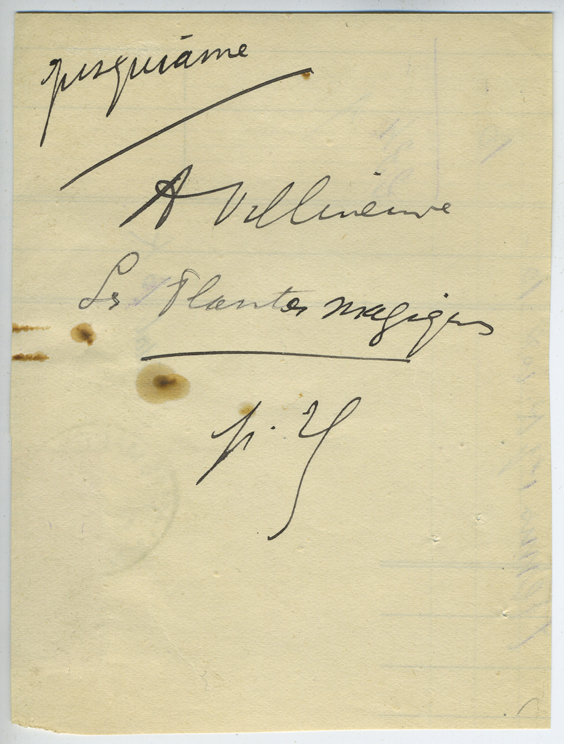 jusquiame
A Villeneuve
Les Plantes magiques
p.